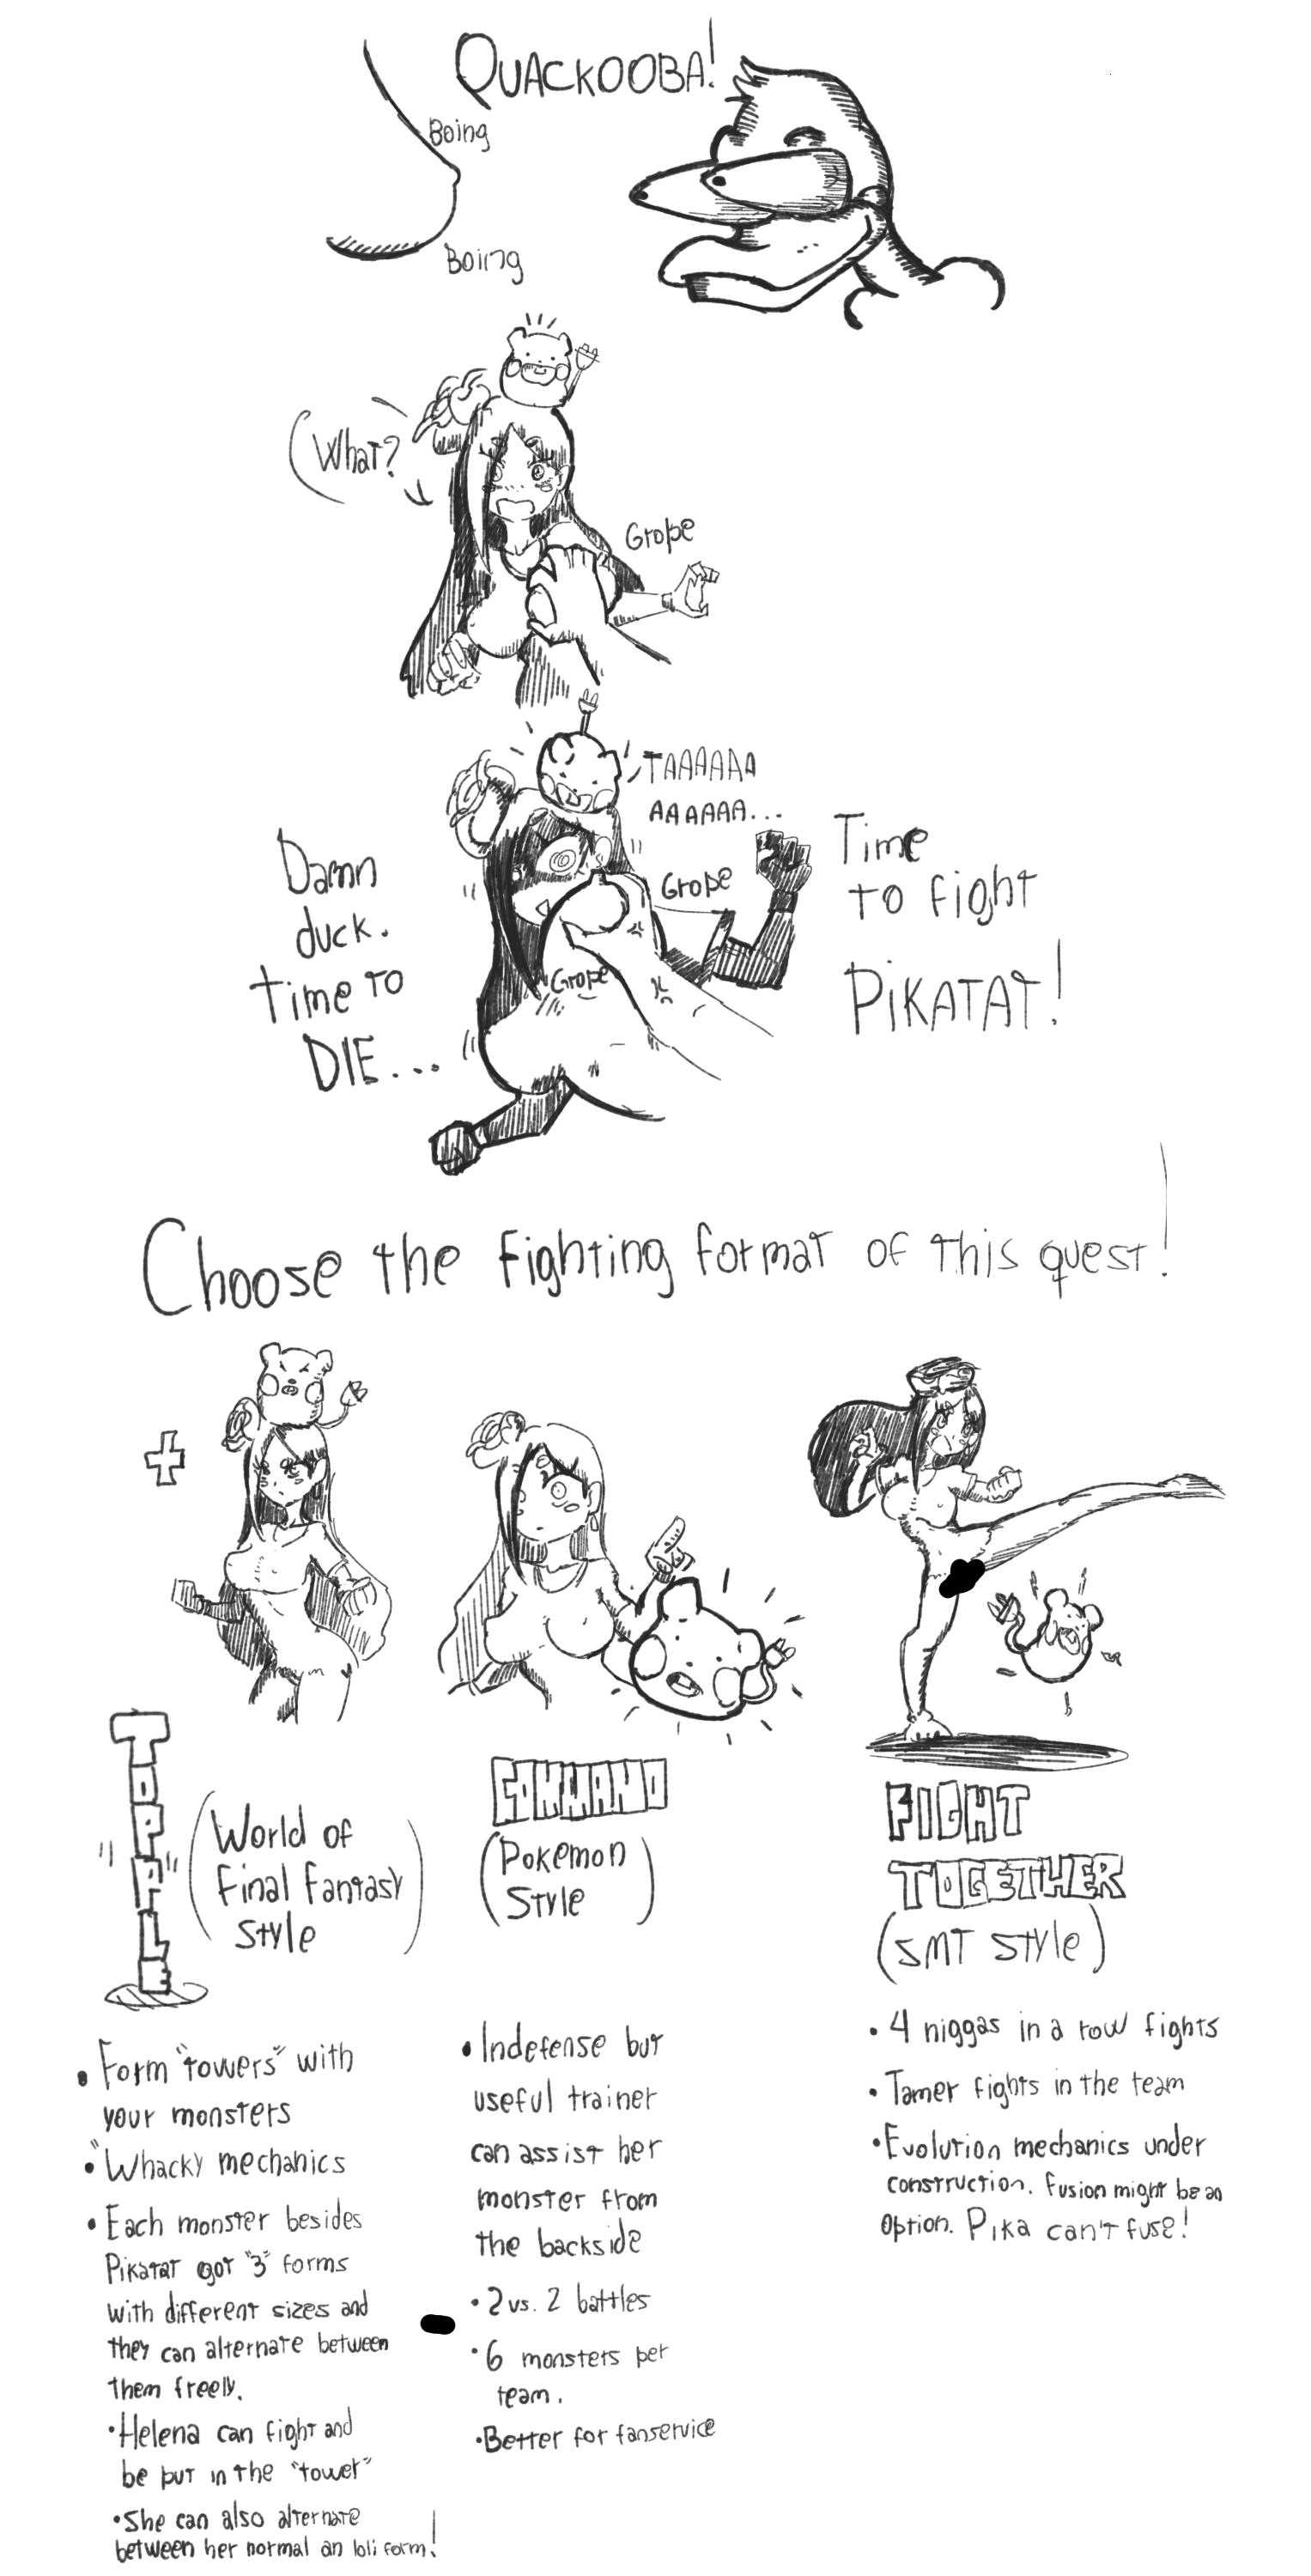 QUACKOOBA!
Boing
Boing
What?
Grope
TAAAAAA
AAAAAA...
Grope
Grope
Damn
duck.
time to
DIE...
Time
to fight
PIKATAT!
Choose the fighting format of this quest!
TOPPLE
(World of
Final Fantasy
style)
• Form "towers" with
your monsters
• "Whacky mechanics
• Each monster besides
Pikatat got "3" forms
with different sizes and
they can alternate between
them freely.
• Helena can fight and
be put in the "tower"
• She can also alternate
between her normal an loli form!
COMMAND
(Pokemon
Style)
• Indefense but
useful trainer
can assist her
monster from
the backside
• 2 vs. 2 battles
• 6 monsters per
team.
• Better for fanservice
FIGHT
TOGETHER
(SMT style)
• 4 niggas in a row fights
• Tamer fights in the team
• Evolution mechanics under
construction. Fusion might be an
option. Pika can't fuse!